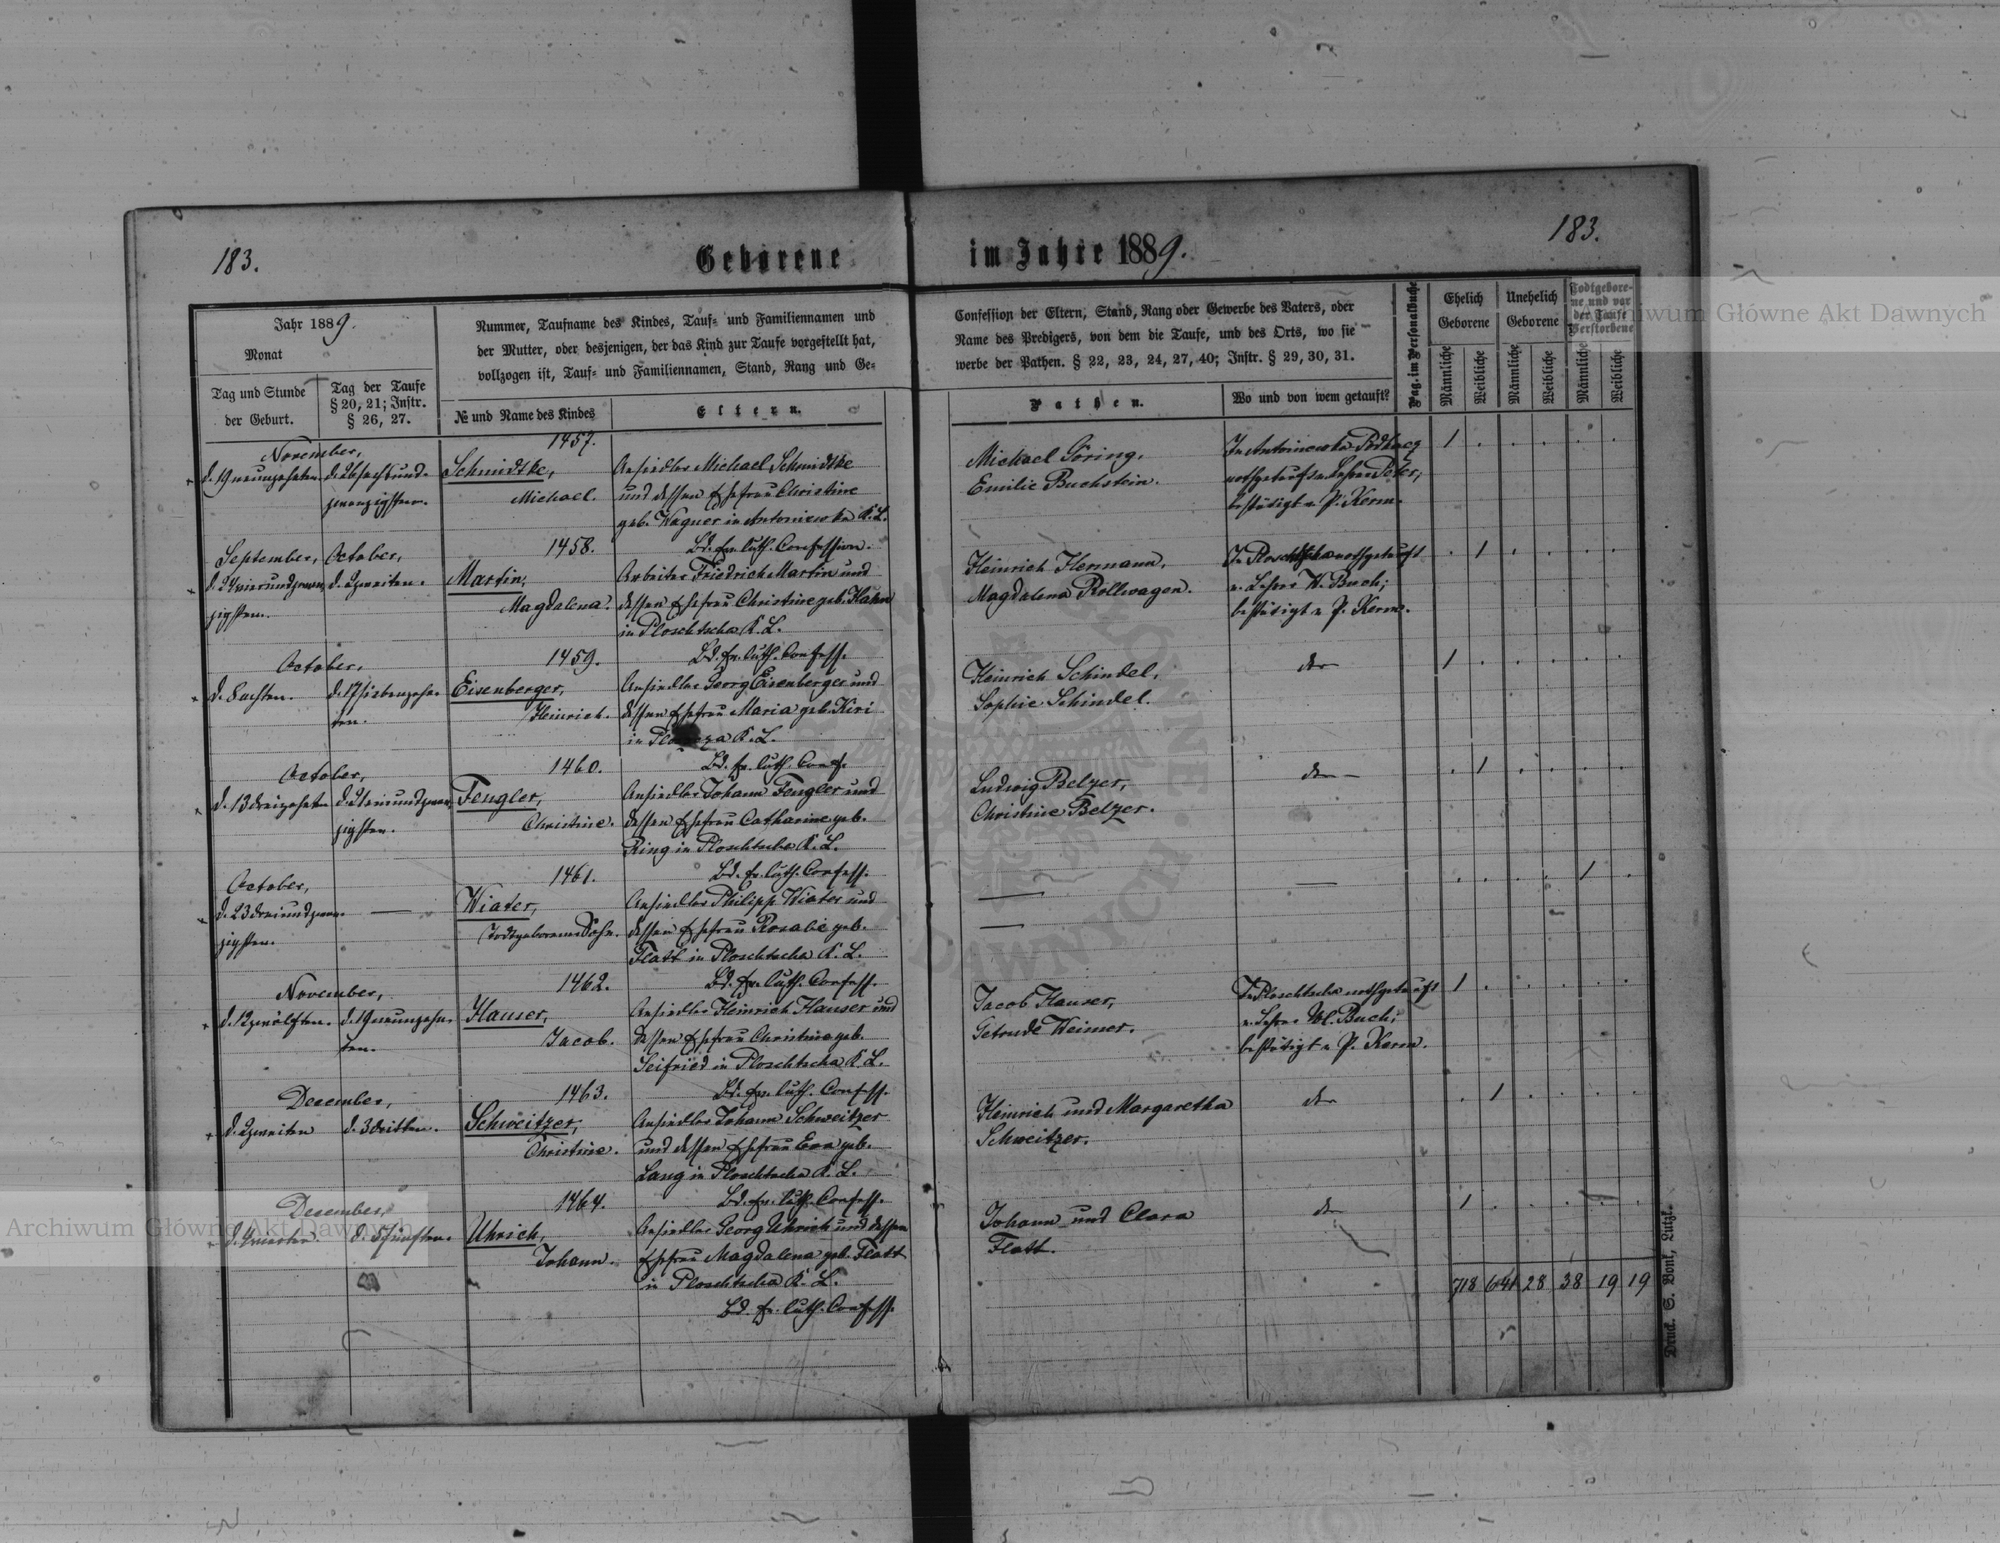 183.
Geborene im Jahre 1889.
183.
Jahr 1889.
Monat
Tag und Stunde
der Geburt.
Tag der Taufe
§ 20, 21; Instr.
§ 26, 27.
Nummer, Taufname des Kindes, Tauf- und Familiennamen und
der Mutter, oder desjenigen, der das Kind zur Taufe vorgestellt hat,
vollzogen ist, Tauf- und Familiennamen, Stand, Rang und Ge-
№ und Name des Kindes
Eltern.
Confession der Eltern, Stand, Rang oder Gewerbe des Vaters, oder
Name des Predigers, von dem die Taufe, und des Orts, wo sie
werbe der Pathen. § 22, 23, 24, 27, 40; Instr. § 29, 30, 31.
Pathen.
Wo und von wem getauft?
Pag. im Personalbuche
Ehelich
Geborene
Unehelich
Geborene
Todtgebore-
ne und vor
der Taufe
Verstorbene
Männliche
Weibliche
Männliche
Weibliche
Männliche
Weibliche
November,
d. 19 neunzehnten
d. 28 acht und-
zwanzigsten.
1457.
Schmidtke,
Michael.
Ansiedler Michael Schmidtke
und dessen Ehefrau Christine
geb. Wagner in Antoniewka K. L.
Bd. ev. luth. Confession.
Michael Göring,
Emilie Buchstein.
In Antoniewka
nothgetauft v. Lehrer Peter;
bestätigt v. P. Kerm.
1
September,
d. 24 vierundzwan
zigsten.
October,
d. 2 zweiten.
1458.
Martin,
Magdalena.
Arbeiter Friedrich Martin und
dessen Ehefrau Christine geb. Hahn
in Ploschtscha K. L.
Bd. ev. luth. Confess.
Heinrich Hermann,
Magdalena Rollwagen.
In Ploschtscha nothgetauft
v. Lehrer W. Buch;
bestätigt v. P. Kerm.
1
October,
d. 8 achten.
d. 17 siebenzehn-
ten.
1459.
Eisenberger,
Heinrich.
Ansiedler Georg Eisenberger und
dessen Ehefrau Maria geb. Kiri
in K. L.
Bd. ev. luth. Conf.
Heinrich Schindel,
Sophie Schindel.
1
October,
d. 13 dreizehnten
d. 21 einundzwan
zigsten.
1460.
Fengler,
Christine.
Ansiedler Johann Fengler und
dessen Ehefrau Catharine geb.
Ring in Ploschtscha K. L.
Bd. ev. luth. Confess.
Ludwig Belzer,
Christine Belzer.
1
October,
d. 23 dreiundzwan-
zigsten.
1461.
Wiater,
Todtgeborener Sohn.
Ansiedler Philipp Wiater und
dessen Ehefrau Rosalie geb.
Flatt in Ploschtscha K. L.
Bd. ev. luth. Confess.
1
November,
d. 12 zwölften.
d. 19 neunzehn-
ten.
1462.
Hauser,
Jacob.
Ansiedler Heinrich Hauser und
dessen Ehefrau Christine geb.
Seifried in Ploschtscha K. L.
Bd. ev. luth. Confess.
Jacob Hauser,
Getrude Weimer.
In Ploschtscha nothgetauft
v. Lehrer W. Buch;
bestätigt v. P. Kerm.
1
December,
d. 2 zweiten
d. 3 dritten.
1463.
Schweitzer,
Christine.
Ansiedler Johann Schweitzer
und dessen Ehefrau Eva geb.
Lang in Ploschtscha K. L.
Bd. ev. luth. Confess.
Heinrich und Margaretha
Schweitzer.
1
December,
d. 5 fünften.
1464.
Uhrich,
Johann.
Ansiedler Georg Uhrich und dessen
Ehefrau Magdalena geb. Flatt
in Ploschtscha K. L.
Bd. ev. luth. Confess.
Johann und Clara
Flatt.
1
718 641 28 38 19 19
Druck. S. Bonk, Lutzk.
Archiwum Główne Akt Dawnych
Archiwum Główne Akt Dawnych